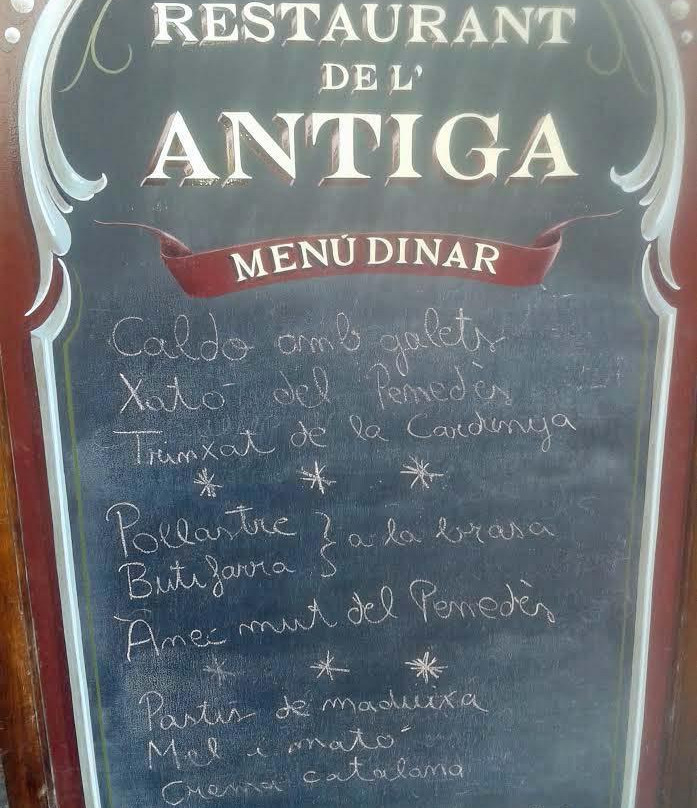 RESTAURANT
DE L'
ANTIGA
MENÚ DINAR
Caldo amb galets
Xató del Penedès
Trinxat de la Cerdanya
* * *
Pollastre } a la brasa
Butifarra
Ànec mut del Penedès
* * *
Pastís de maduixa
Mel i mató
Crema catalana